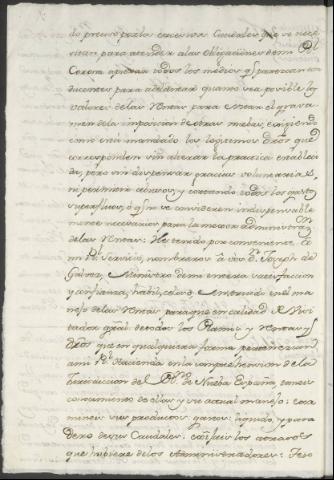 do preciso por los excesivos Caudales que se nece
sitan para atender a las Obligaciones de mi Rl
Corona apurar todos los medios q parezcan con
ducentes para adelantar quanto sea posible los
valores de las Rentas para evitar el grava
men de la imposicion de otras nuebas, exigiendo
como está mandado los legitimos Dros que
correspondan sin alterar la practica estableci
da, pero sin dispensar gracias voluntarias
ni permitir abusos y cortando todos los gastos
superfluos, o q no se consideren indispensable
mente necesarios para la mejor administraz.on
de las Rentas: He tenido por conveniente a
mi Rl Servicio, nombraros a vos Dn Joseph de
Galvez, Ministro de mi entera satisfaccion
y confianza, habil, celoso, y entendido en el ma
nejo de las Rentas para que en calidad de Visi
tador gral de todos los Ramos y Rentas y
Dros que en qualquiera forma pertenezcan
a mi Rl Hacienda en la comprehension de la
Governacion del de Nueba España, tomeis
conocimiento de ellas y su actual manejo: Exa
mineis sus productos, gastos, liquido, y para
dero de sus Caudales: cobreis los atrasos
que hubiere de los Administradores: Teso